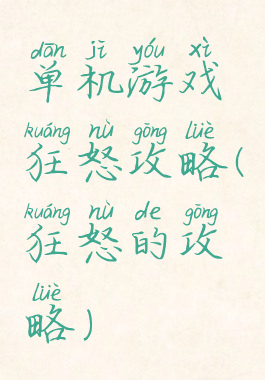 dān jī yóu xì
单机游戏
kuáng nù gōng lüè
狂怒攻略(
kuáng nù de gōng
狂怒的攻
lüè
略)